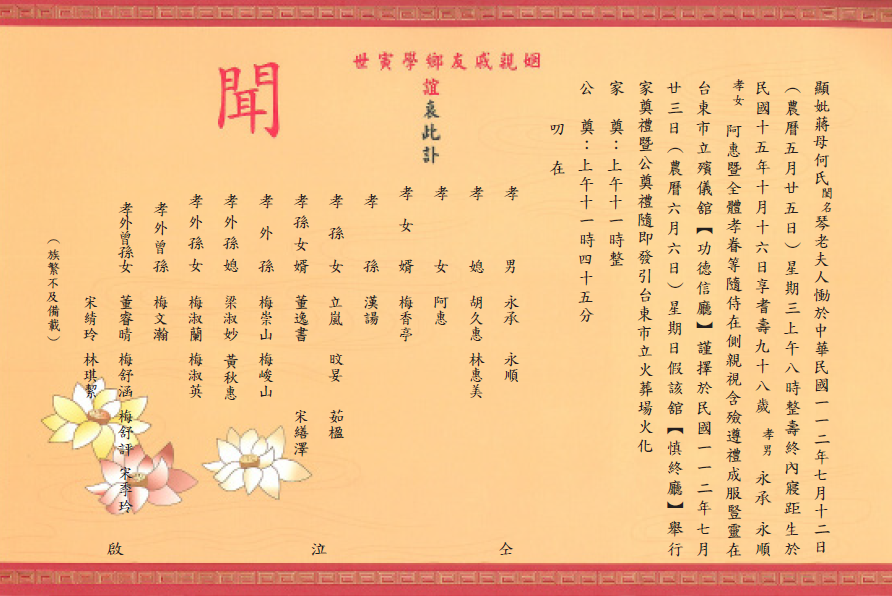 顯妣蔣母何氏閨名琴老夫人慟於中華民國一一二年七月十二日
（農曆五月廿五日）星期三上午八時整壽終內寢距生於
民國十五年十月十六日享耆壽九十八歲 孝男 永承 永順
孝女 阿惠暨全體孝眷等隨侍在側親視含殮遵禮成服豎靈在
台東市立殯儀館【功德信廳】謹擇於民國一一二年七月
廿三日（農曆六月六日）星期日假該館【慎終廳】舉行
家奠禮暨公奠禮隨即發引台東市立火葬場火化
家 奠：上午十一時整
公 奠：上午十一時四十五分
叨 在
世寅學鄉友戚親姻
誼哀此訃
聞
孝 男 永承 永順
孝 媳 胡久惠 林惠美
孝 女 阿惠
孝 女 婿 梅香亭
孝 孫 漢諹
孝 孫 女 立嵐 旼妟 茹楹
孝 孫 女 婿 董逸書 宋繕澤
孝 外 孫 梅崇山 梅峻山
孝 外 孫 媳 梁淑妙 黃秋惠
孝 外 孫 女 梅淑蘭 梅淑英
孝 外 曾 孫 梅文瀚
孝外曾孫女 董睿晴 梅舒涵 梅舒評 宋季玲
宋綪玲 林琪絜
仝 泣 啟
（族繁不及備載）